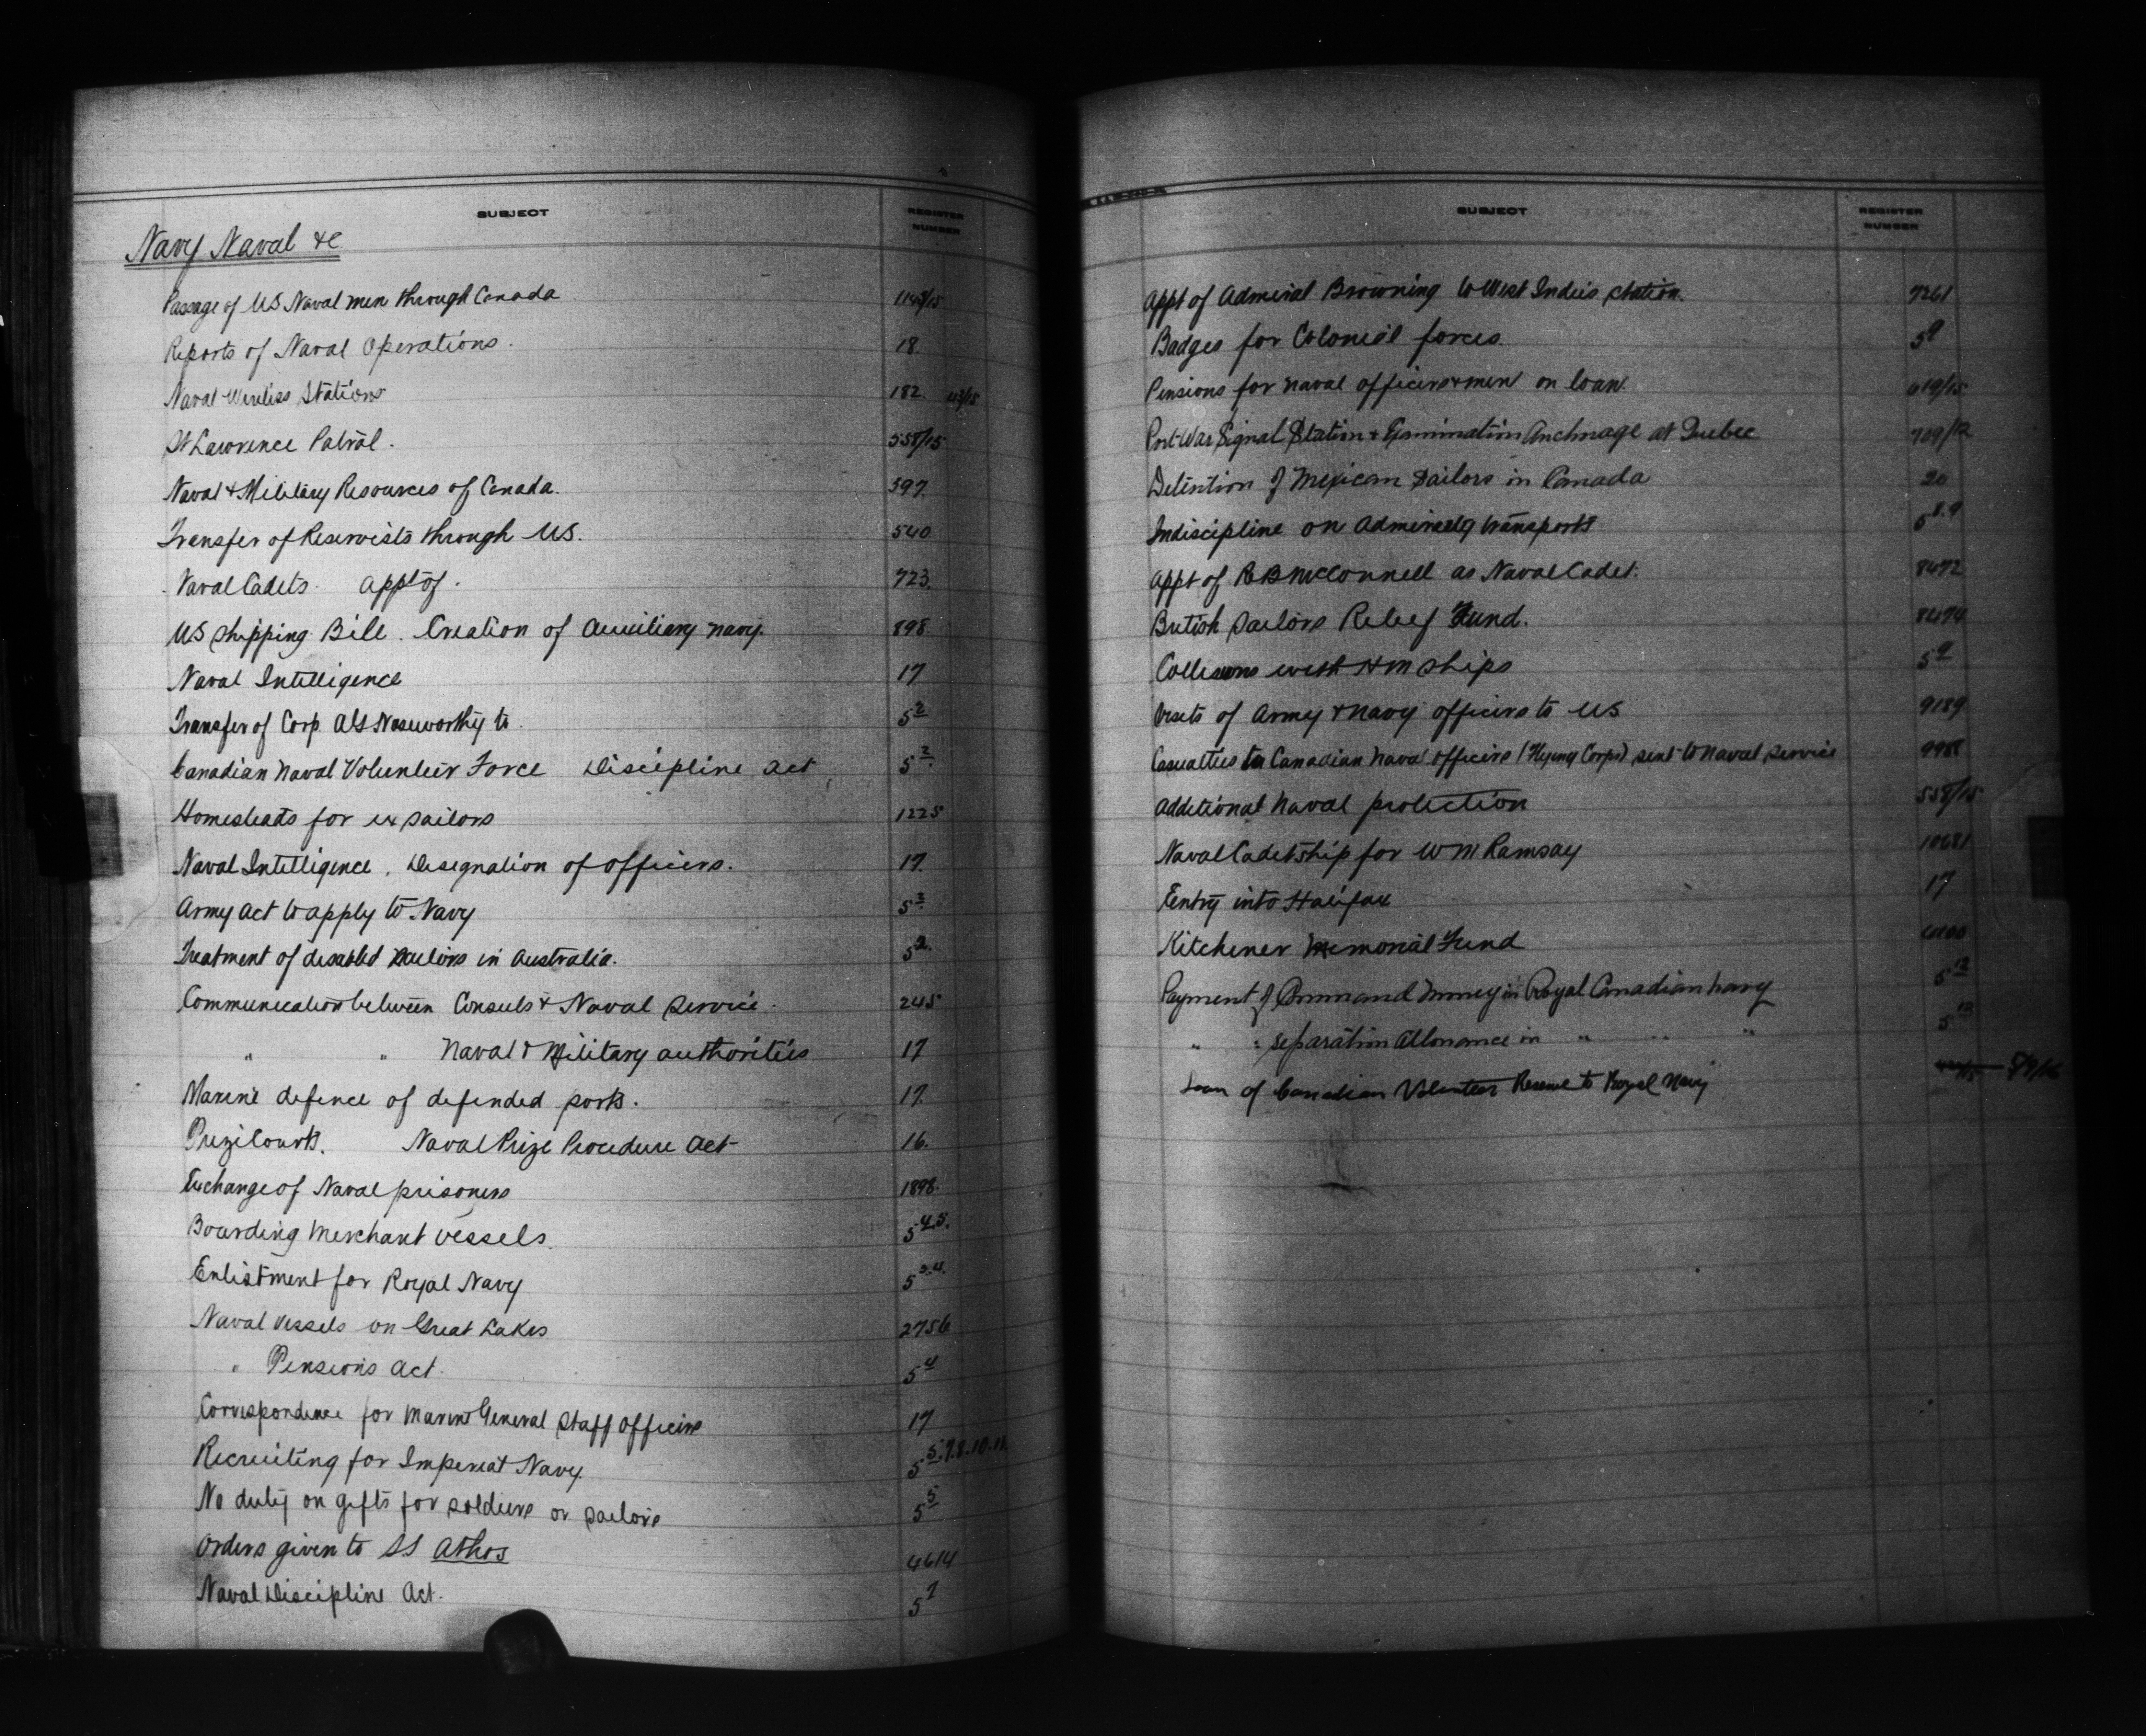 SUBJECT REGISTER NUMBER
Navy Naval &c
Passage of US Naval men through Canada 1143/15
Reports of Naval Operations. 18
Naval Wireless Stations 182. 43/15
St Lawrence Patrol. 558/15
Naval & Military Resources of Canada. 597.
Transfer of Reservists through US. 540
Naval Cadets. appt of. 723.
US Shipping Bill. Creation of Auxiliary navy. 898
Naval Intelligence 17
Transfer of Corp. Noseworthy to. 5 2
Canadian Naval Volunteer Force Discipline act 5 2.
Homesteads for ex sailors 1225
Naval Intelligence. Designation of officers. 17.
Army act to apply to Navy 5 3.
Treatment of disabled sailors in Australia. 5 2.
Communication between Consuls & Naval Service. 245
" " Naval & Military authorities 17
Marine defence of defended ports. 17.
Prize Courts. Naval Prize Procedure act 16.
Exchange of Naval prisoners 1898.
Boarding merchant vessels. 5 4.5.
Enlistment for Royal Navy 5 3.4.
Naval Vessels on Great Lakes 2756
" Pensions act. 5 4
Correspondence for Marine General Staff officers 17
Recruiting for Imperial Navy. 5 5.7.8.10.11.
No duty on gifts for soldiers or sailors 5 5
Orders given to SS Athos 4614
Naval Discipline Act. 5 7
SUBJECT REGISTER NUMBER
Appt of Admiral Browning to West Indies station. 7261
Badges for Colonial forces. 5 9
Pensions for naval officers & men on loan. 619/15
Port War Signal Station & Examination Anchorage at Quebec 709/12
Detention of Mexican Sailors in Canada 20
Indiscipline on Admiralty transports 5 8.9
Appt of R B McConnell as Naval Cadet. 8472
British Sailors Relief Fund. 8474
Collisions with HM ships 5 9
Visits of Army & Navy officers to US 9189
Casualties to Canadian Naval officers (Flying Corps) sent to naval service
Additional Naval protection 558/15
Naval Cadetship for W M Ramsay 10681
Entry into Halifax 17
Kitchener Memorial Fund
Payment of Command Money in Royal Canadian navy 5 12
" " Separation Allowance in " " " 5 12
Loan of Canadian Volunteer Reserve to Royal Navy